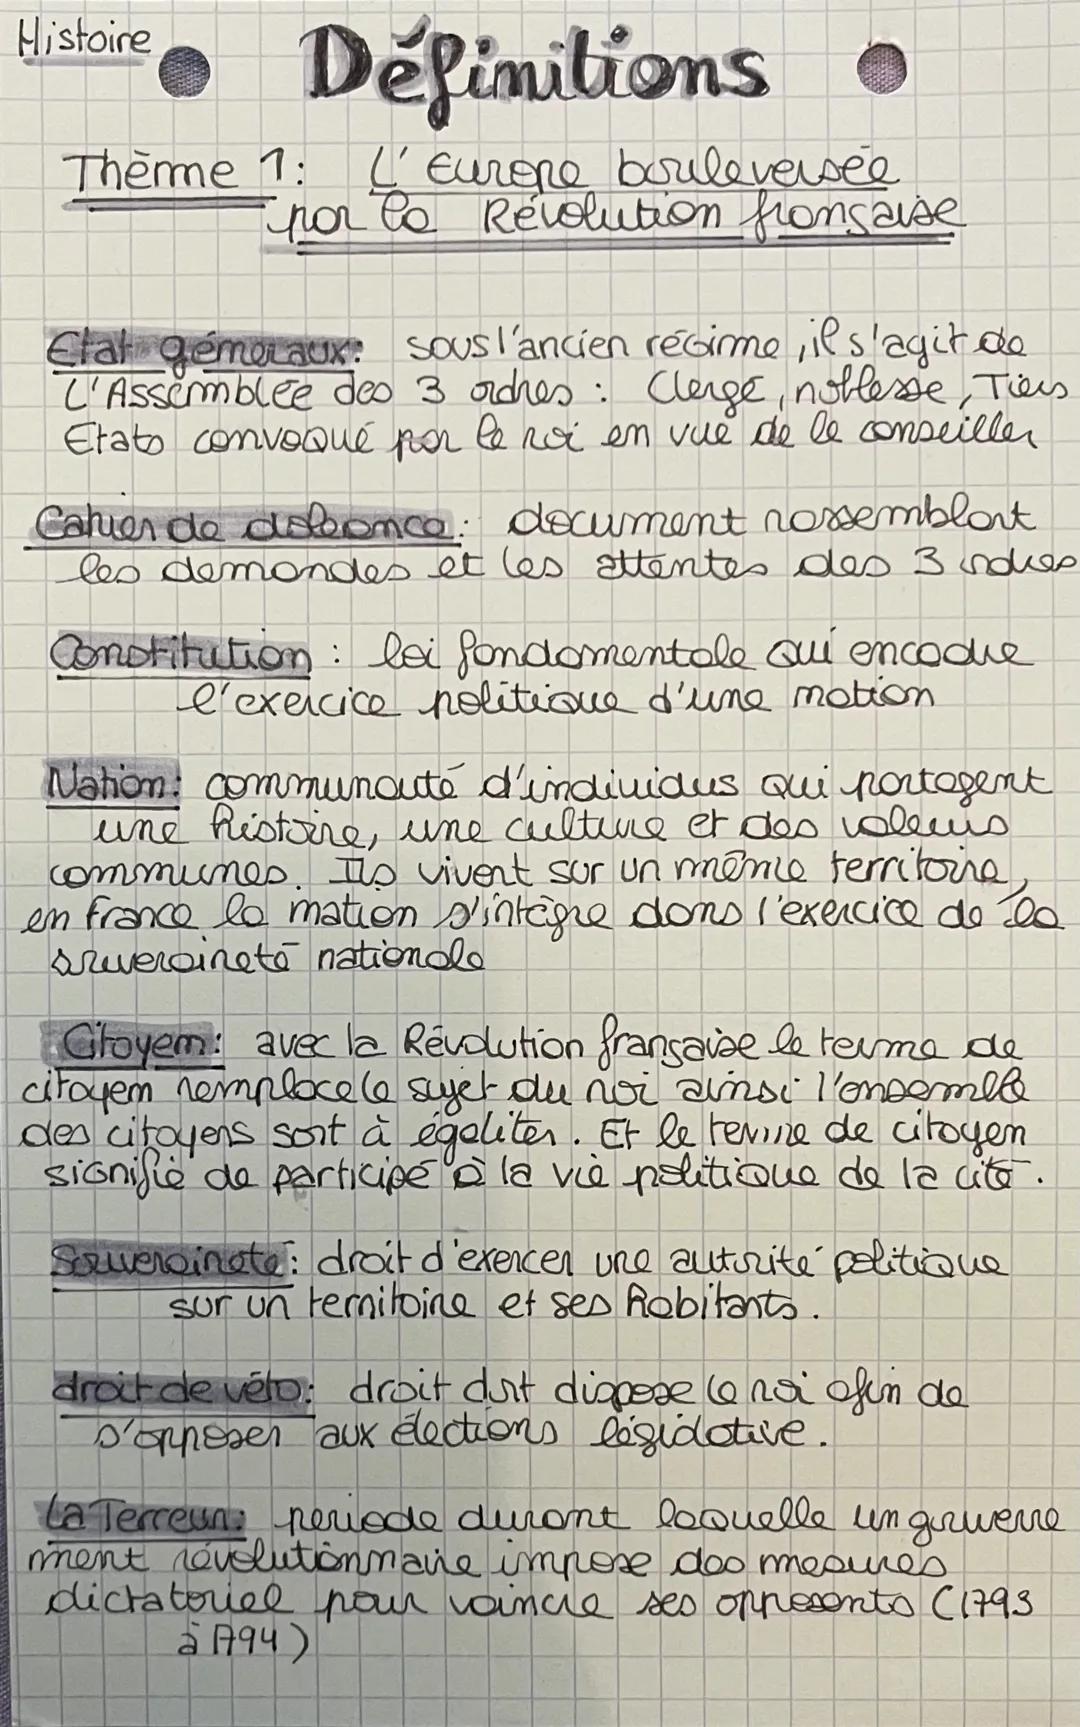 Histoire
Définitions
Thème 1: L'Europe bouleversée
par la Révolution française
Etat généraux: sous l'ancien régime, il s'agit de
L'Assemblée des 3 ordres : Clergé, noblesse, Tiers
Etats convoqué par le roi en vue de le conseiller
Cahier de doléance: document rassemblant
les demandes et les attentes des 3 ordres
Constitution : loi fondamentale qui encadre
l'exercice politique d'une nation
Nation: communauté d'individus qui partagent
une histoire, une culture et des valeurs
communes. Ils vivent sur un même territoire,
en France la nation s'intègre dans l'exercice de la
souveraineté nationale
Citoyen: avec la Révolution française le terme de
citoyen remplace le sujet du roi ainsi l'ensemble
des citoyens sont à égaliter. Et le terme de citoyen
signifie de participé à la vie politique de la cité.
Souveraineté: droit d'exercer une autorité politique
sur un territoire et ses habitants.
droit de véto: droit dont dispose le roi afin de
s'opposer aux élections législative.
La Terreur: periode durant laquelle un gouverne
ment révolutionnaire impose des mesures
dictatoriel pour vaincre ses opposants (1793
à 1794)